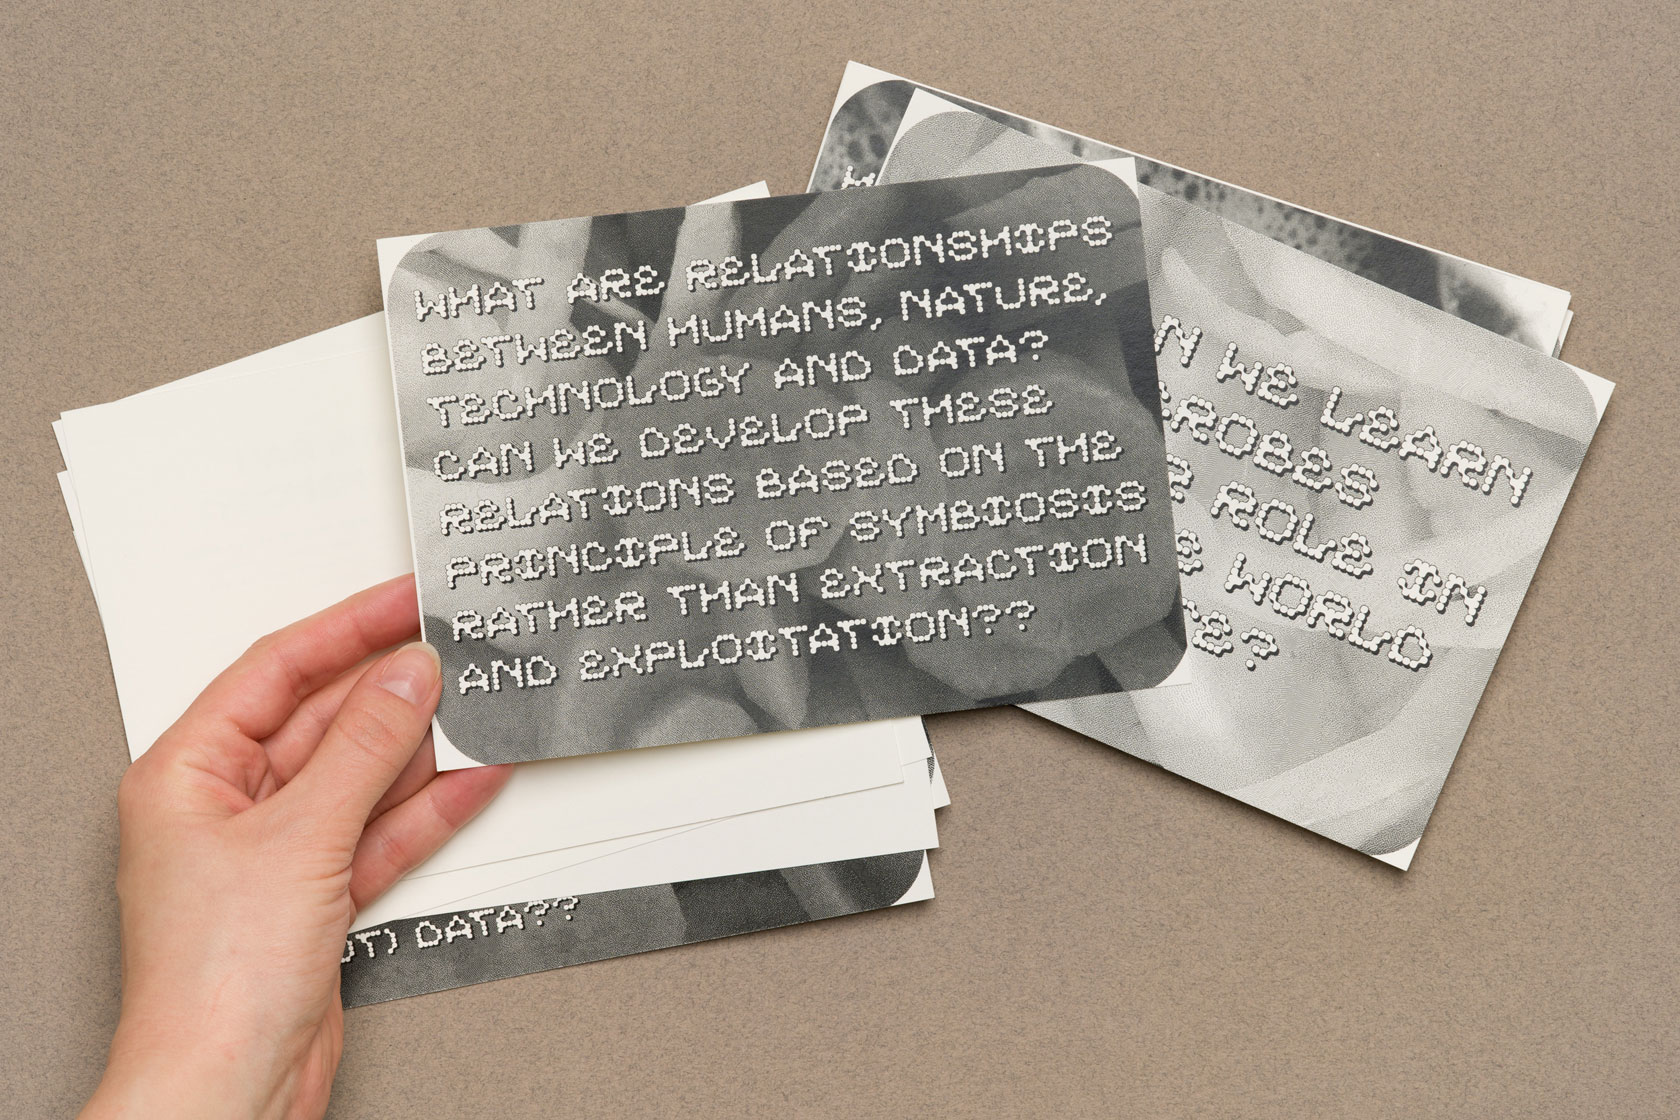 WHAT ARE RELATIONSHIPS
BETWEEN HUMANS, NATURE,
TECHNOLOGY AND DATA?
CAN WE DEVELOP THESE
RELATIONS BASED ON THE
PRINCIPLE OF SYMBIOSIS
RATHER THAN EXTRACTION
AND EXPLOITATION??
WE LEARN
ROLE IN
WORLD
DATA??